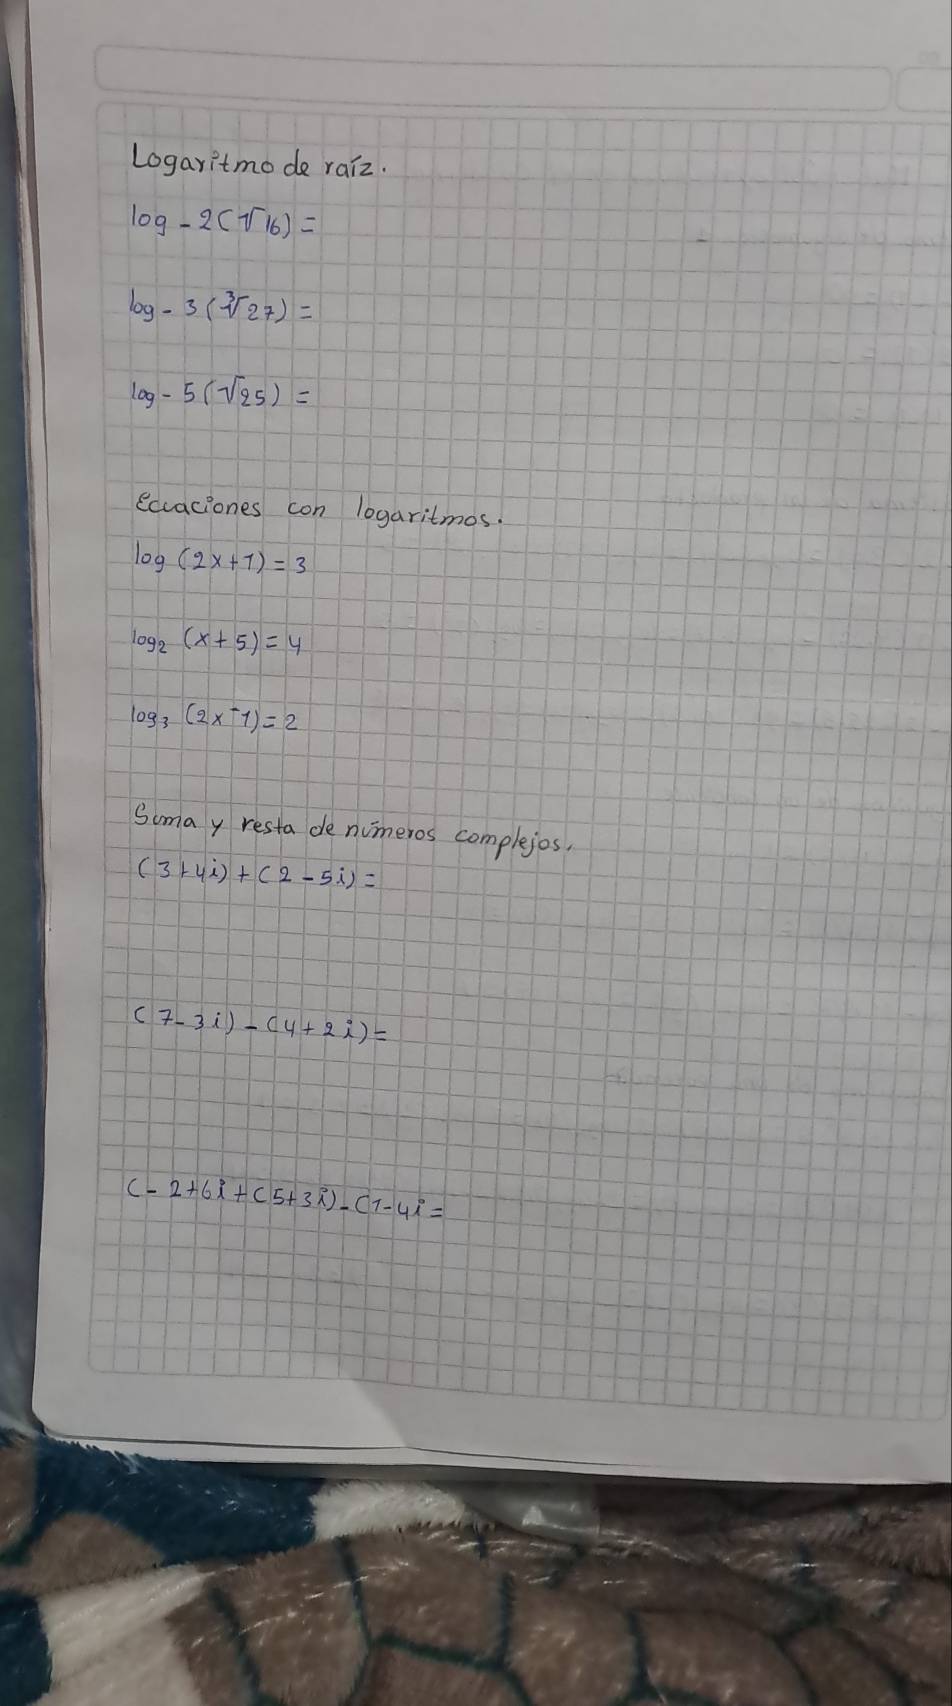 Logaritmo de raíz.
log - 2(√16) =
log - 3(∛27) =
log - 5(√25) =
Ecuaciones con logaritmos.
log (2x+1) = 3
log₂ (x+5) = 4
log₃ (2x-1) = 2
Suma y resta de números complejos.
(3+4i) + (2-5i) =
(7-3i) - (4+2i) =
(-2+6i + (5+3i) - (1-4i =